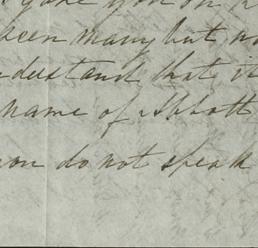 gave you on
been many but no
derstand that it
name of Abbott
you do not speak